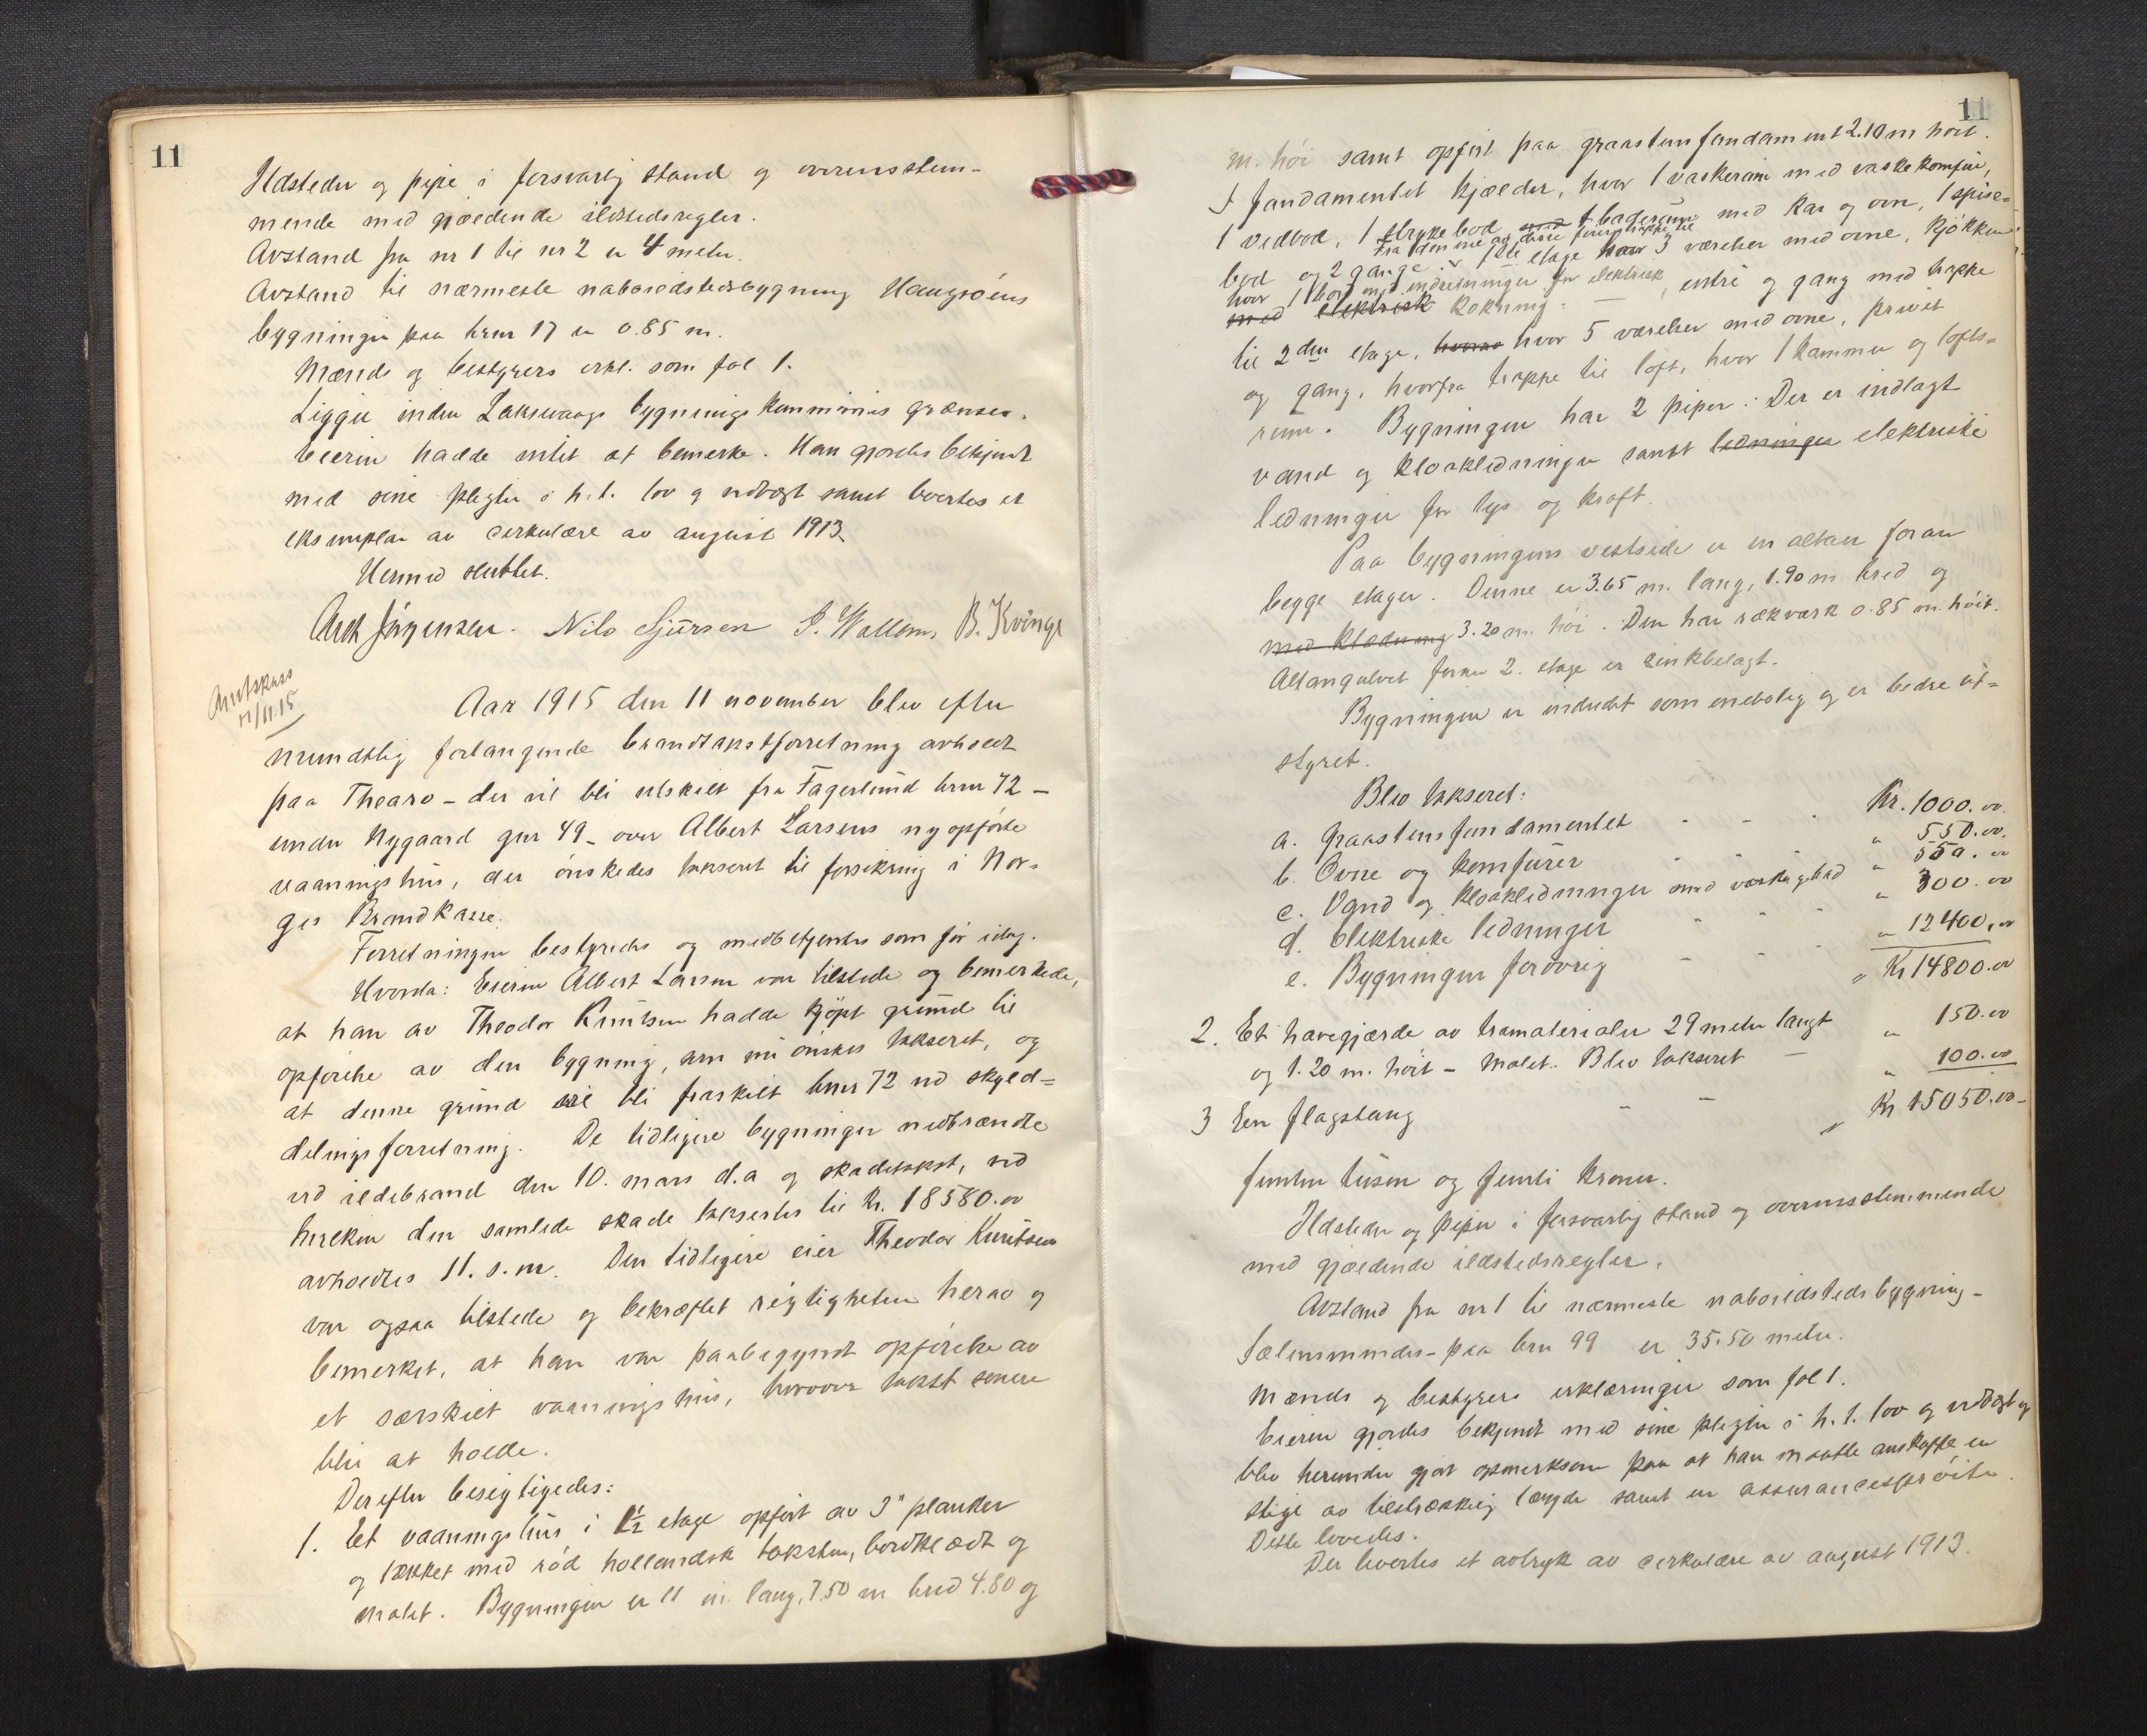 11
Ildsteder og pipe i forsvarlig stand og overensstem-
mende med gjældende ildstedsregler.
Avstand fra nr 1 til nr 2 er 4 meter.
Avstand til nærmeste naboildstedsbygning
bygninger paa brnr 17 er 0.85 m.
Mænds og bestyrers erkl. som fol 1.
Ligger inden Laksevaags bygningskommunes grænser.
Eieren hadde intet at bemerke. Han gjordes bekjendt
med sine pligter i h. t. lov og vedtægt samt levertes et
eksemplar av cirkulære av august 1913.
Hermed sluttet.
Jørgensen. Nils Sjursen B. Kvinge
Amtskass
11/11.15
Aar 1915 den 11 november blev efter
mundtlig forlangende brandtakstforretning avholdt
paa Thearo - der vil bli utskilt fra Fagerlund brnr 72 -
under Nygaard gnr 49 - over Albert Larsens nyopførte
vaaningshus, der ønskedes takseret til forsikring i Nor-
ges Brandkasse.
Forretningen bestyredes og medbetjentes som før idag.
Hvorda: Eieren Albert Larsen var tilstede og bemerkede,
at han av Theodor Knutsen hadde kjøpt grund til
opførelse av den bygning, som nu ønskes takseret, og
at denne grund vil bli fraskilt brnr 72 ved skyld-
delingsforretning. De tidligere bygninger nedbrændte
ved ildebrand den 10. mars d.a og skadetakst, ved
hvilken den samlede skade taksertes til Kr. 18580.00
avholdtes 11. s.m. Den tidligere eier Theodor Knutsen
var ogsaa tilstede og bekræftet rigtigheten herav og
bemerket, at han var paabegyndt opførelse av
et særskilt vaaningshus, hvorover takst senere
blir at holde.
Derefter besigtigedes:
1. Et vaaningshus i 1½ etage opført av 3" planker
og tækket med rød hollandsk taksten, bordklædt og
malet. Bygningen er 11 m. lang, 7.50 m bred 4.80 og
11
m. høi samt opført paa graastensfundament 2.10 m høit.
I fundamentet kjælder, hvor 1 vaskerum med vaskekomfur,
1 vedbod, 1 strykebod med 1 baderum med kar og ovn, 1 spise-
bod og 2 gange. Fra den ene av disse fører trappe til
1ste etage hvor 3 værelser med ovne, kjøkken
hvor 1 bord med indretninger for elektrisk
med elektrisk kokning. - , entré og gang med trappe
til 2den etage, hvorav hvor 5 værelser med ovne, privet
og gang, hvorfra trappe til loft, hvor 1 kammer og lofts-
rum. Bygningen har 2 piper. Der er indlagt
vand og kloakledninger samt ledninger elektriske
ledninger for lys og kraft.
Paa bygningens vestside er en altan foran
begge etager. Denne er 3.65 m. lang, 1.90 m bred og
med klædning 3.20 m. høi. Den har rækværk 0.85 m. høit.
Altangulvet foran 2. etage er zinkbelagt.
Bygningen er indredet som enebolig og er bedre ut-
styret.
Blev takseret:
a. Graastensfundamentet - - . Kr. 1000.00.
b. Ovne og komfurer " 550.00.
c. Vand og kloakledninger med vask og bad " 550.00
d. Elektriske ledninger " 300.00
e. Bygningen forøvrig - - - " 12400.00
" Kr 14800.00
2. Et havegjærde av træmaterialer 29 meter langt
og 1.20 m. høit - malet. Blev takseret - " 150.00
3 En flagstang - - " 100.00
" Kr 15050.00-
femten tusen og femti kroner.
Ildsteder og piper i forsvarlig stand og overensstemmende
med gjældende ildstedsregler.
Avstand fra nr 1 til nærmeste naboildstedsbygning -
paa brn 99 er 35.50 meter.
Mænds og bestyrers erklæringer som fol 1.
Eieren gjordes bekjendt med sine pligter i h. t. lov og vedtægt og
blev herunder gjort opmerksom paa at han maatte anskaffe en
stige av tilstrækkelig længde samt en assurancesprøite.
Dette lovedes.
Der levertes et avtryk av cirkulære av august 1913.